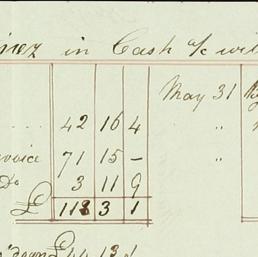 in Cash a/c
42 16 4 May 31
voice 71 15 – "
Do 3 11 9 "
£ 118 3 1
down £44 13